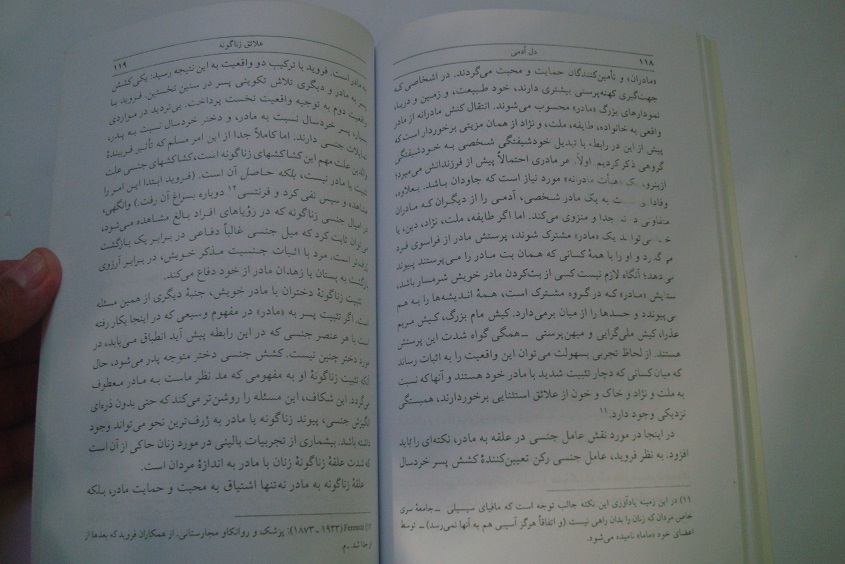 ۱۱۸
دل آدمی
«مادران» و تأمین‌کنندگان حمایت و محبت می‌گردند. در اشخاصی که
جهت‌گیری کهنه‌پرستی بیشتری دارند، خود طبیعت، و زمین و دریا،
نمودارهای بزرگ «مادر» محسوب می‌شوند. انتقال کنش مادرانه از مادر
واقعی به خانواده، طایفه، ملت، و نژاد از همان مزیتی برخوردار است که
پیش از این در رابط، با تبدیل خودشیفتگی شخصی به خودشیفتگی
گروهی ذکر کردیم. اولاً، هر مادری احتمالاً پیش از فرزندانش می‌میرد؛
ازینرو، یک «هیأت مادرانه» مورد نیاز است که جاودان باشد. بعلاوه،
به یک مادر شخصی، آدمی را از دیگران که مادران
جدا و منزوی می‌کند. اما اگر طایفه، ملت، نژاد، دین، یا
یک «مادر» مشترک شوند، پرستش مادر از فراسوی فرد
می‌گذرد و او را با همهٔ کسانی که همان بت مادر را می‌پرستند پیوند
می‌دهد؛ آنگاه لازم نیست کسی از بت‌کردن مادر خویش شرمسار باشد،
ستایش «مادر» که در گروه مشترک است، همهٔ اندیشه‌ها را به هم
می‌پیوندد و حسدها را از میان برمی‌دارد. کیش مام بزرگ، کیش مریم
عذرا، کیش ملی‌گرایی و میهن‌پرستی – همگی گواه شدت این پرستش
هستند. از لحاظ تجربی بسهولت می‌توان این واقعیت را به اثبات رساند
که میان کسانی که دچار تثبیت شدید با مادر خود هستند و آنها که نسبت
به ملت و نژاد و خاک و خون از علائق استثنایی برخوردارند، همبستگی
نزدیکی وجود دارد.۱۱
در اینجا در مورد نقش عامل جنسی در علقه به مادر، نکته‌ای را باید
افزود. به نظر فروید، عامل جنسی رکن تعیین‌کنندهٔ کشش پسر خردسال
۱۱) در این زمینه یادآوری این نکته جالب توجه است که مافیای سیسیلی – جامعهٔ سری
خاص مردان که زنان را بدان راهی نیست (و اتفاقاً هرگز آسیبی هم به آنها نمی‌رسد) – توسط
اعضای خود «ماما» نامیده می‌شود.
علائق زناگونه
۱۱۹
به مادر است. فروید با ترکیب دو واقعیت به این نتیجه رسید: یکی کشش
پسر به مادر و دیگری تلاش تکوینی پسر در سنین نخستین. فروید با
واقعیت دوم به توجیه واقعیت نخست پرداخت. بی‌تردید در مواردی
پسر خردسال نسبت به مادر، و دختر خردسال نسبت به پدر،
تمایلات جنسی دارند. اما کاملاً جدا از این امر مسلم که تأثیر فریبندهٔ
والدین علت مهم این کشاکشهای زناگونه است، کشاکشهای جنسی علت
تثبیت با مادر نیست، بلکه حاصل آن است. (فروید ابتدا این امر را
مشاهده و سپس نفی کرد و فرنتسی۱۲ دوباره بسراغ آن رفت.) وانگهی،
در امیال جنسی زناگونه که در رؤیاهای افراد بالغ مشاهده می‌شود،
می‌توان ثابت کرد که میل جنسی غالباً دفاعی در برابر یک بازگشت
ژرف‌تر است. مرد با اثبات جنسیت مذکر خویش، در برابر آرزوی
بازگشت به پستان یا زهدان مادر از خود دفاع می‌کند.
تثبیت زناگونهٔ دختران با مادر خویش، جنبهٔ دیگری از همین مسئله
است. اگر تثبیت پسر به «مادر» در مفهوم وسیعی که در اینجا بکار رفته
است با هر عنصر جنسی که در این رابطه پیش آید انطباق می‌یابد، در
مورد دختر چنین نیست. کشش جنسی دختر متوجه پدر می‌شود، حال
آنکه تثبیت زناگونهٔ او به مفهومی که مد نظر ماست به مادر معطوف
می‌گردد. این شکاف، این مسئله را روشن‌تر می‌کند که حتی بدون ذره‌ای
انگیزش جنسی، پیوند زناگونه با مادر به ژرف‌ترین نحو می‌تواند وجود
داشته باشد. بیشماری از تجربیات بالینی در مورد زنان حاکی از آن است
که شدت علقهٔ زناگونهٔ زنان با مادر به اندازهٔ مردان است.
علقهٔ زناگونه به مادر نه‌تنها اشتیاق به محبت و حمایت مادر، بلکه
(۱۸۷۳ - ۱۹۳۳): پزشک و روانکاو مجارستانی. از همکاران فروید که بعدها از
او جدا شد. ـ م.